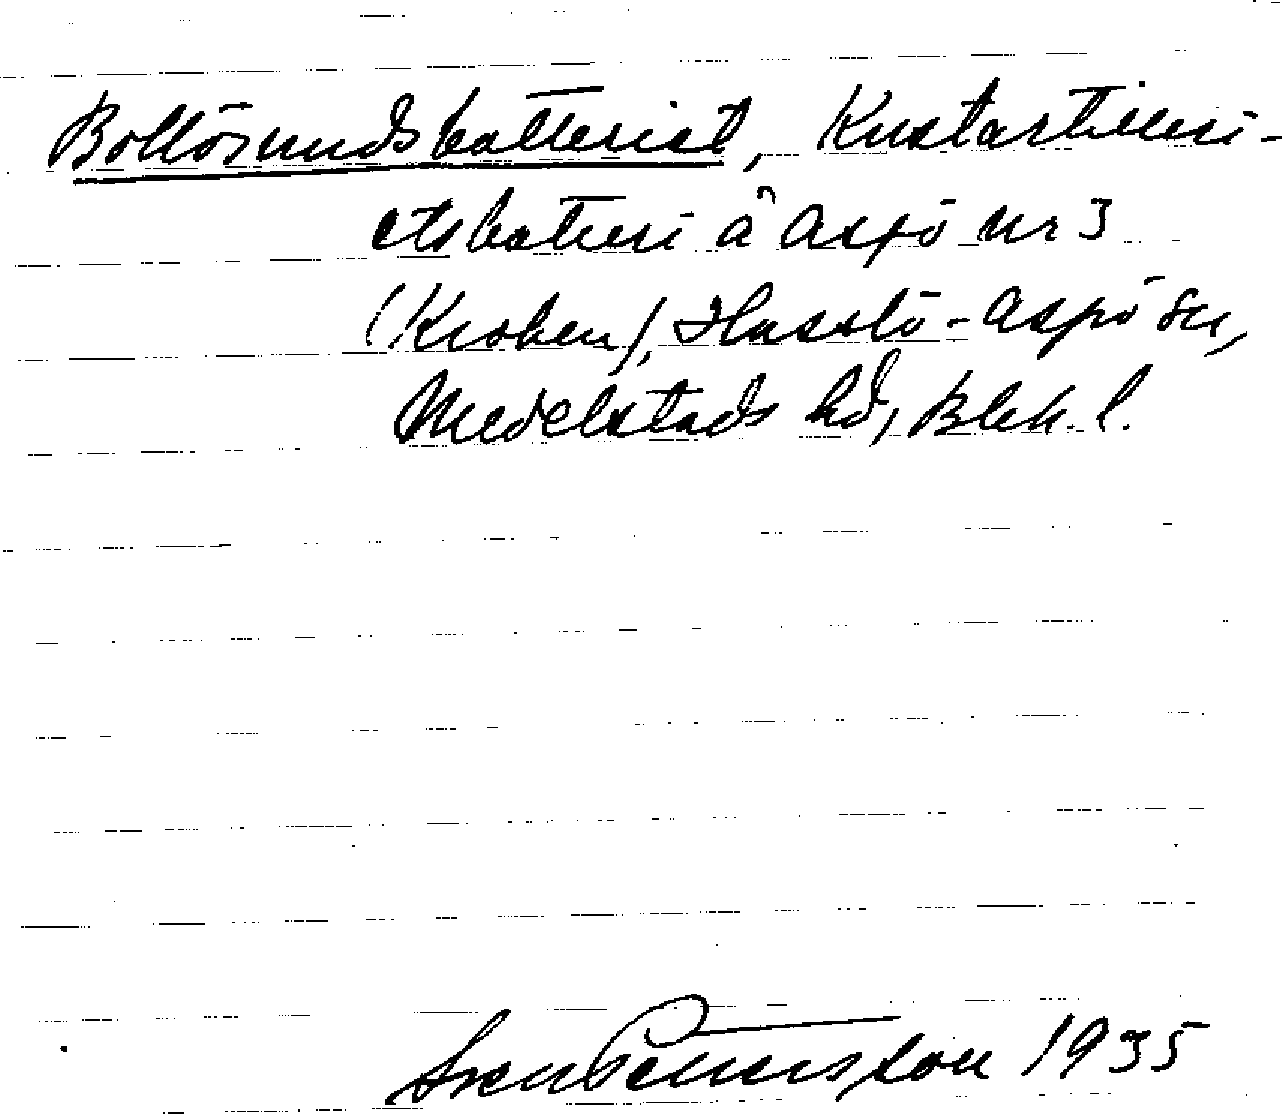 Bollösundsbatteriet, Kustartilleri-
etsbatteri å Aspö nr 3
(Kroken), Hasslö-Aspö sn,
Medelstads hd, Blek. l.
Sven Petersson 1935